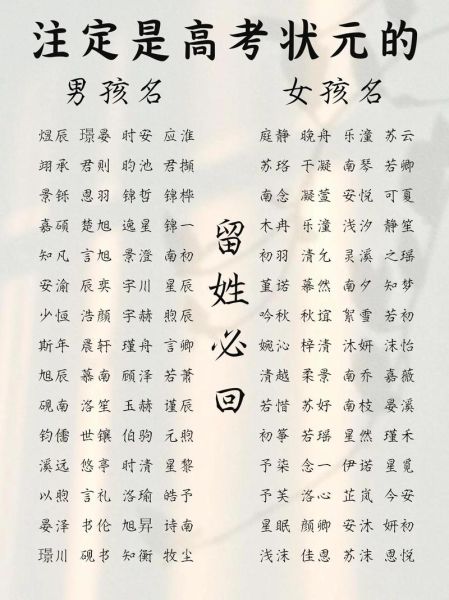 注定是高考状元的
男孩名
煜辰 璟晏 时安 应淮
翊承 君则 昀池 君撷
景铄 思羽 锦哲 锦桦
嘉硕 楚旭 逸星 锦一
知凡 言旭 景澄 南初
安渝 辰奕 宇川 星辰
少恒 浩颜 宇赫 煦辰
斯年 晨轩 瑾舟 言卿
旭辰 慕南 顾泽 若萧
砚南 洛笙 玉赫 谨辰
钧儒 世镶 伯驹 元煦
溪远 悠亭 时清 星黎
以煦 言礼 洛瑜 皓予
晏泽 书伦 旭昇 诗南
璟川 砚书 知衡 牧尘
留姓必回
女孩名
庭静 晚舟 乐潼 苏云
苏珞 干凝 南琴 若卿
南念 凝萱 安悦 可夏
木冉 乐潼 浅汐 静笙
初羽 清允 灵溪 之瑶
堇诺 慕然 南夕 知梦
吟秋 秋谊 絮雪 若初
婉沁 梓清 沐妍 沫怡
清越 柔景 南乔 嘉薇
若惜 苏好 南枝 晏溪
初筝 若瑶 星然 瑾禾
予柒 念一 伊诺 星觅
予芙 洛心 芷岚 今安
星眠 颜卿 安沐 妍初
浅沫 佳恩 苏沫 恩悦